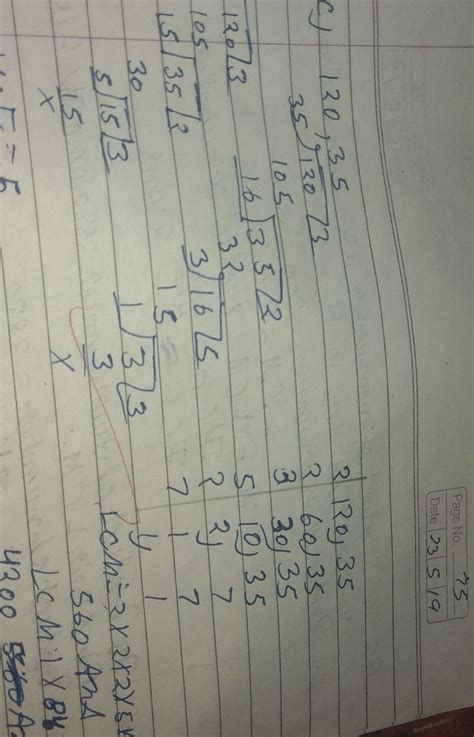 Page No. 75
Date 23 5 19
c) 120, 35
35)120(3
105
16)35(2
32
3)16(5
15
1)3(3
3
x
120(3
105
15)35(2
30
5)15(3
15
x
= 5
2 120, 35
2 60, 35
3 30, 35
5 10, 35
2 2, 7
7 1 7
1 1
LCM = 2x2x2x5x
560 Ans
LCM = 1 x 84
4200